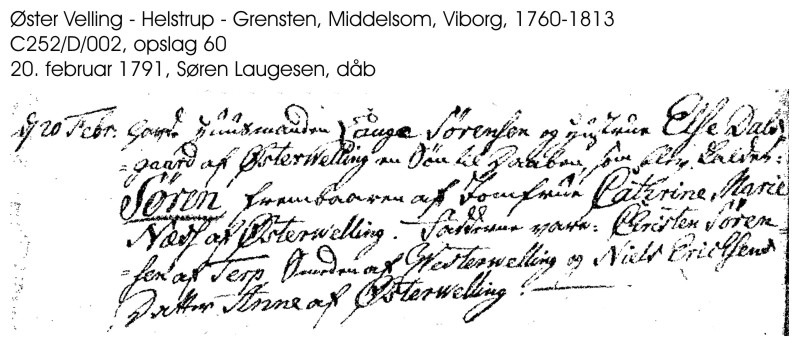 Øster Velling - Helstrup - Grensten, Middelsom, Viborg, 1760-1813
C252/D/002, opslag 60
20. februar 1791, Søren Laugesen, dåb
d 20 Febr. havde Huusmanden Lauge Sørensen og Hustrue Else Dals-
=gaard af Østerwelling en Søn til Daaben, som blev kaldet:
Søren, frembaaren af Jomfrue Cathrine Marie
af Østerwelling. Fadderne vare: Christen Søren-
=sen af Terp, Smeden af Westerwelling og Niels Erichsens
Datter Anne af Østerwelling.